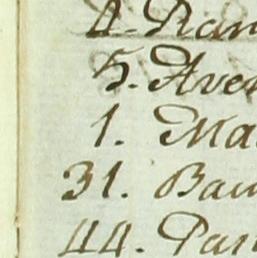 4. Ran
5. Aver
1. Ma
31. Bau
44. Pan